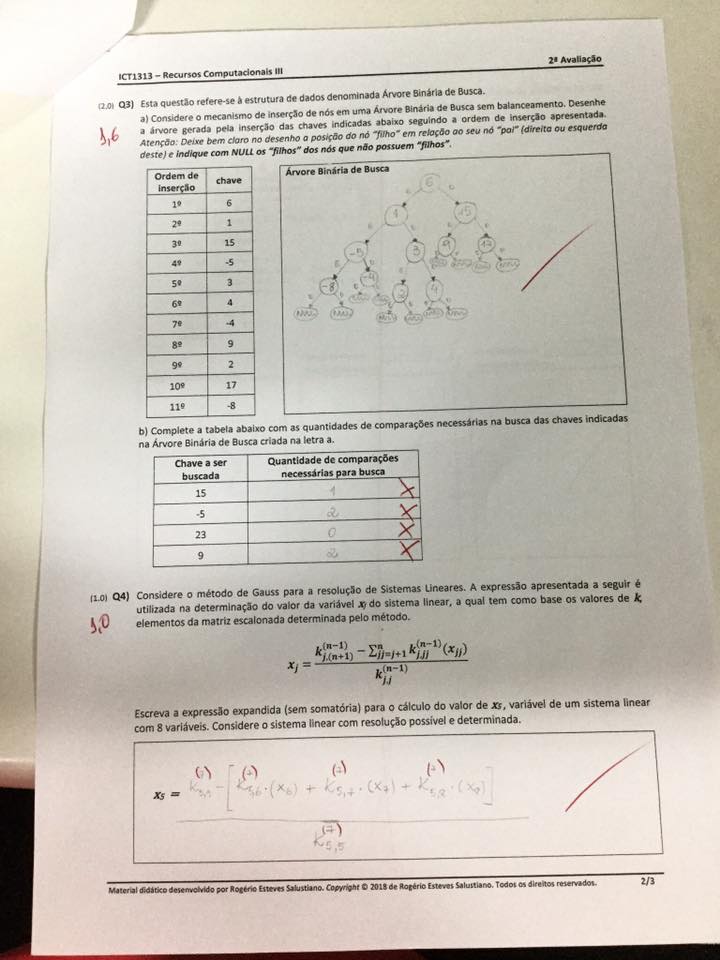 ICT1313 – Recursos Computacionais III 2ª Avaliação
(2.0) Q3) Esta questão refere-se à estrutura de dados denominada Árvore Binária de Busca.
1,6
a) Considere o mecanismo de inserção de nós em uma Árvore Binária de Busca sem balanceamento. Desenhe
a árvore gerada pela inserção das chaves indicadas abaixo seguindo a ordem de inserção apresentada.
Atenção: Deixe bem claro no desenho a posição do nó “filho” em relação ao seu nó “pai” (direita ou esquerda
deste) e indique com NULL os “filhos” dos nós que não possuem “filhos”.
Ordem de inserção chave
1º 6
2º 1
3º 15
4º -5
5º 3
6º 4
7º -4
8º 9
9º 2
10º 17
11º -8
Árvore Binária de Busca
6
1 15
-5 3 9 17
-8 -4 2 4
b) Complete a tabela abaixo com as quantidades de comparações necessárias na busca das chaves indicadas
na Árvore Binária de Busca criada na letra a.
Chave a ser buscada Quantidade de comparações necessárias para busca
15 1 X
-5 2 X
23 0 X
9 2 X
(1.0) Q4) Considere o método de Gauss para a resolução de Sistemas Lineares. A expressão apresentada a seguir é
1,0
utilizada na determinação do valor da variável xj do sistema linear, a qual tem como base os valores de k,
elementos da matriz escalonada determinada pelo método.
xj = (k j,(n+1)^(n−1) − Σ jj=j+1^n k j,jj^(n−1) (x jj)) / k j,j^(n−1)
Escreva a expressão expandida (sem somatória) para o cálculo do valor de x5, variável de um sistema linear
com 8 variáveis. Considere o sistema linear com resolução possível e determinada.
x5 = k5,9^(7) - [k5,6^(7) · (x6) + k5,7^(7) · (x7) + k5,8^(7) · (x8)]
k5,5^(7)
Material didático desenvolvido por Rogério Esteves Salustiano. Copyright © 2018 de Rogério Esteves Salustiano. Todos os direitos reservados. 2/3